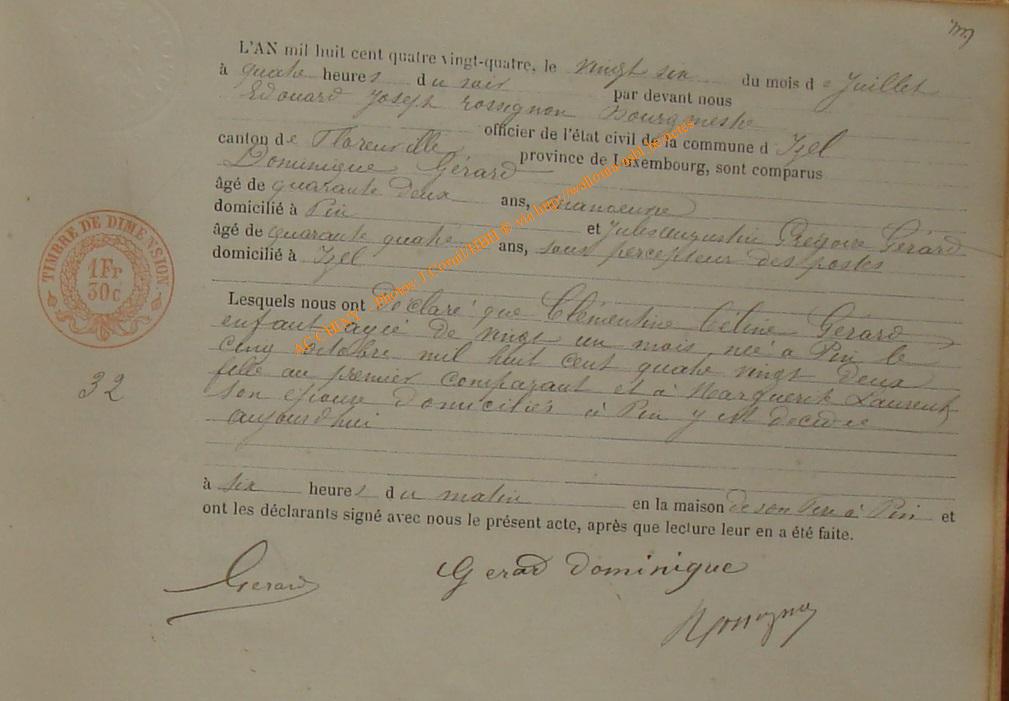 L'AN mil huit cent quatre vingt-quatre, le vingt six du mois de Juillet
à quatre heures du soir par devant nous
Edouard Joseph Rossignon Bourgmestre
officier de l'état civil de la commune d Izel
canton de Florenville province de Luxembourg, sont comparus
Dominique Gérard
âgé de quarante deux ans, manoeuvre
domicilié à Pin et Jules Augustin Grégoire Gérard
âgé de quarante quatre ans, sous percepteur des postes
domicilié à Izel
Lesquels nous ont Déclaré que Clémentine Céline Gérard
enfant agée de vingt un mois née à Pin le
cinq octobre mil huit cent quatre vingt deux
fille au premier comparant et à Marguerite Laurent,
son épouse domiciliés à Pin y est décédée
aujourd'hui
à six heures du matin en la maison de son Père à Pin et
ont les déclarants signé avec nous le présent acte, après que lecture leur en a été faite.
Gerard
Gerard Dominique
Rossignon
TIMBRE DE DIMENSION.
1 Fr
30c
32